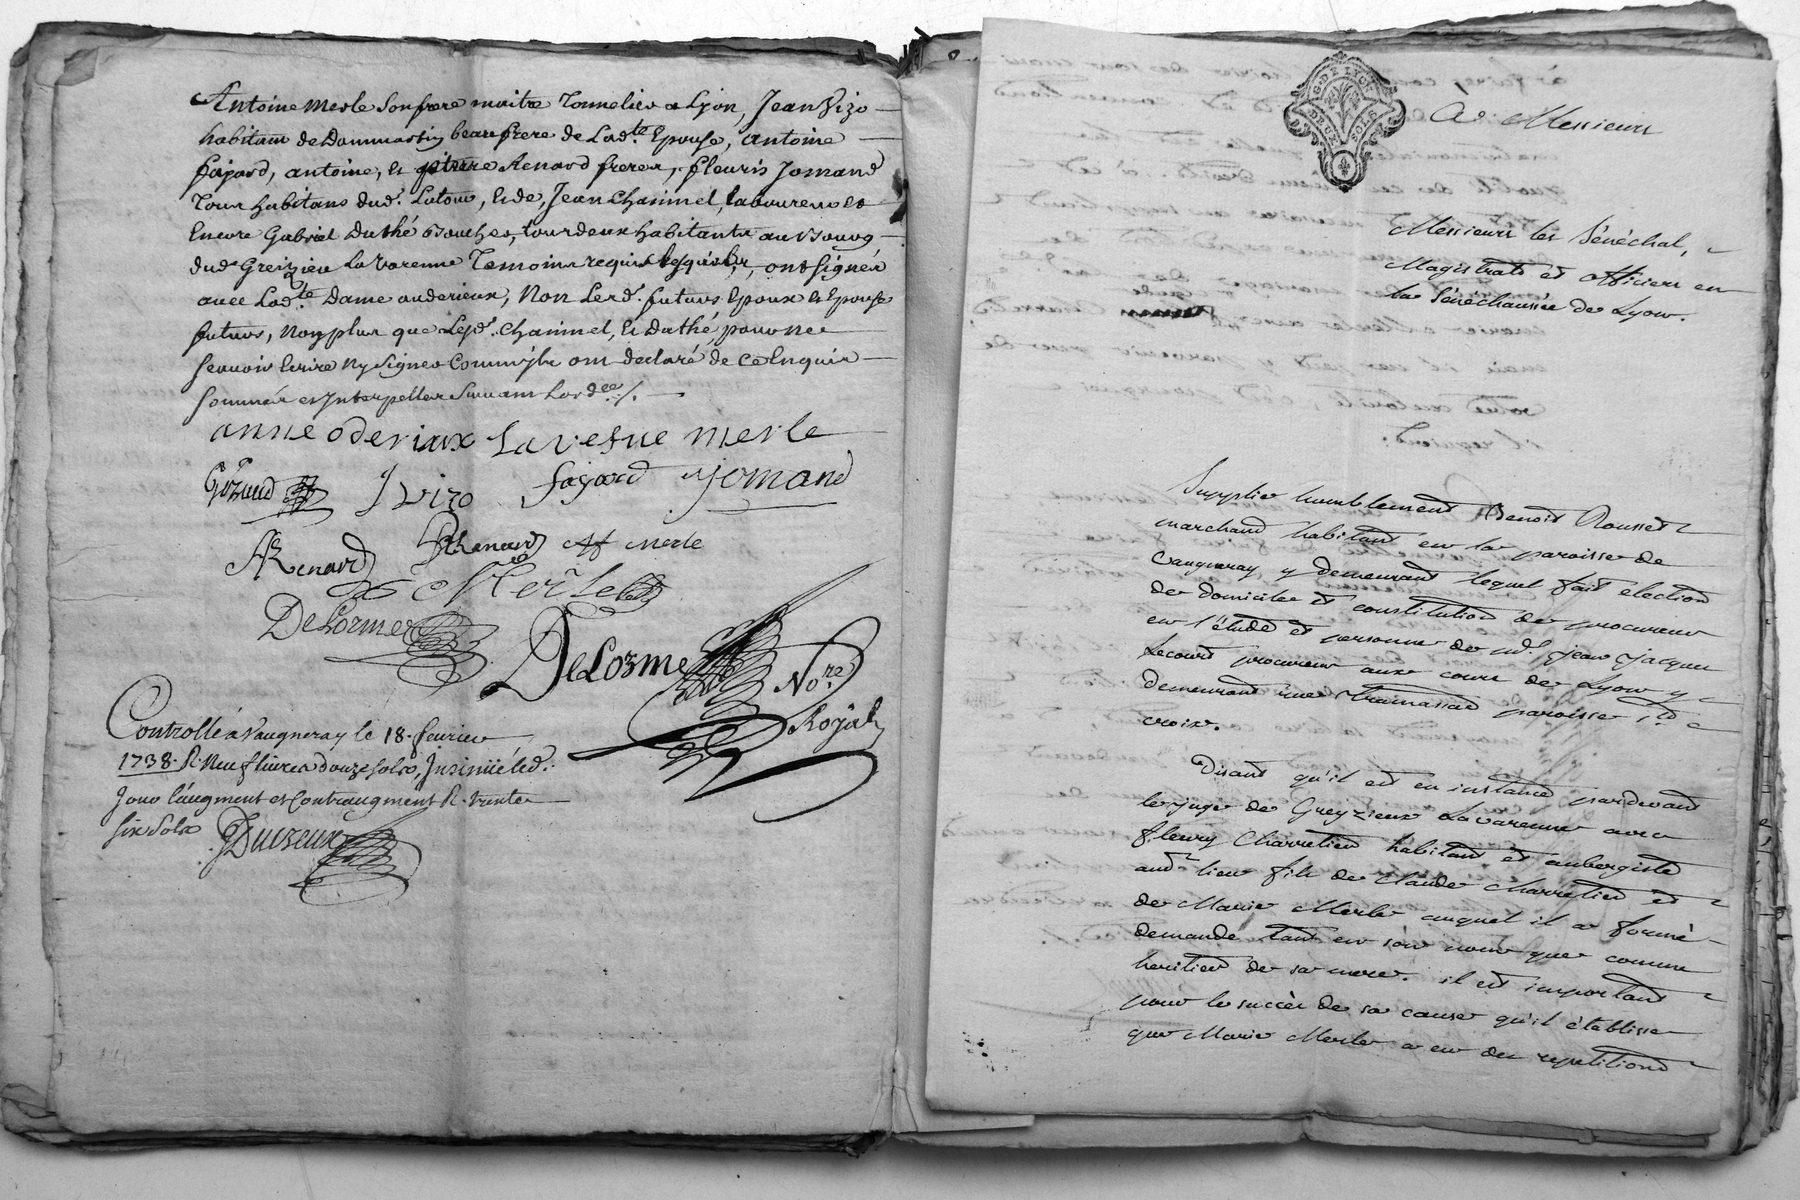 Antoine Merle Son frere maitre Tonnelier a Lyon, Jean Vizo
habitant de Dommartin beaufrere de Lad.te Epouse, antoine
fajard, antoine, et pierre Renard freres, fleuris Jomand
Tous habitans dud. Latour, et de, Jean Charimel, Laboureur et
Encore Gabriel Duthé Boucher, tous deux habitants au Bourg
dud. Greizieu La Varenne Temoins requis lesquels, ont signés
avec Lad.te Dame auderieux, Non Lesd. futurs Epoux et Epouse
futurs, Non plus que Lesd. Charimel, et Duthé, pour ne
scavoir Ecrire Ny signer Comm'ils ont declaré de ce Enquis
sommés et Interpellés Suivant Lord.ce /.
anne oderiaux La vesue merle
Gozand J vizo fajard Jomand
A Renard P Renard Aff merle
Merle
DeLorme
DeLorme No.re
Royal
Controllé à Vaugneray le 18. fevrier
1738. R. Neuf livres douze sols, Insinüé led.
Jour l'augment et Contraugment R. trente
six sols
Duizeux
G. DE LYON
DEUX SOLS
A Messieurs
Messieurs les Sénéchal,
Magistrats et officiers en
la Sénéchaussée de Lyon.
Supplie humblement Benoit Rousset
marchand habitant en la paroisse de
Vaugneray y demeurant lequel fait election
de domicile et constitution de procureur
en l'étude et personne de M.e Jean Jacques
Lecourt procureur aux cours de Lyon y
demeurant rue tramassac paroisse S.te
croix.
Disant qu'il est en instance pardevant
le juge de Greyzieux Lavarenne avec
fleury Charretier habitant et aubergiste
aud. lieu fils de Claude Charretier et
de Marie Merle auquel il a formé
demande tant en son nom que comme
heritier de sa mere. il est important
pour le succès de sa cause qu'il établisse
que Marie Merle a eu des repetitions